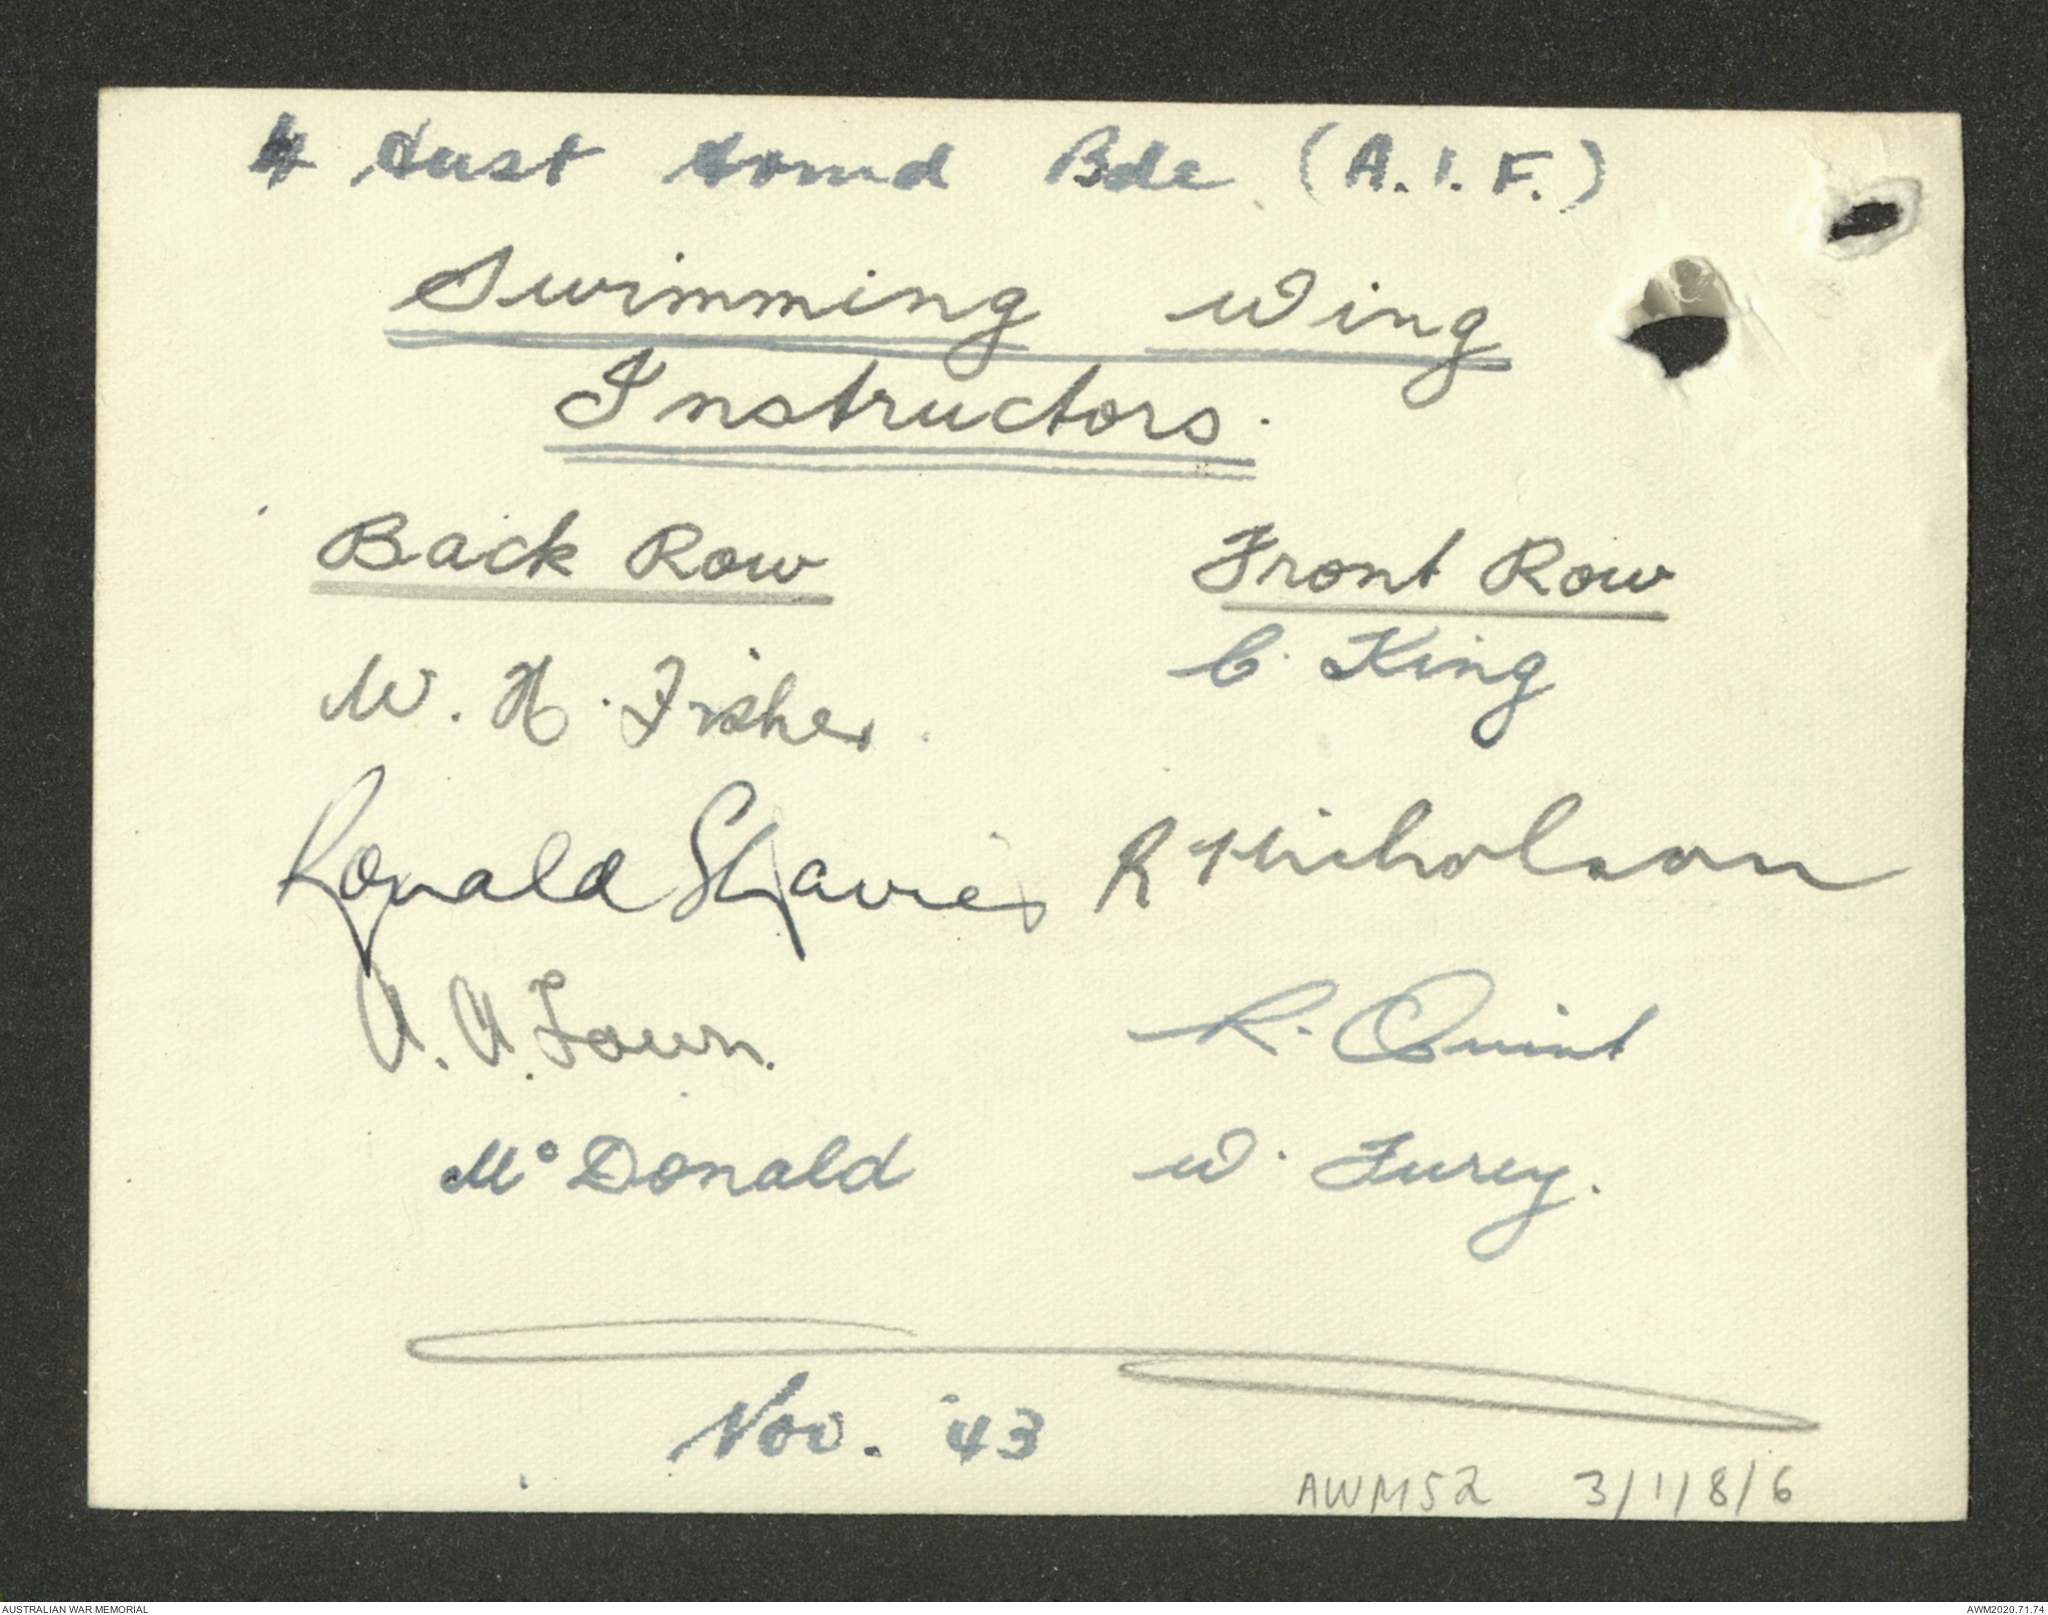 4 Aust Armd Bde (A.I.F.)
Swimming Wing
Instructors.
Back Row Front Row
W. H. Fisher. C. King
Ronald R Nicholson
A. A. Town. R. Quint
McDonald W. Furey.
Nov. '43
AWM52 3/1/8/6
AUSTRALIAN WAR MEMORIAL AWM2020.71.74